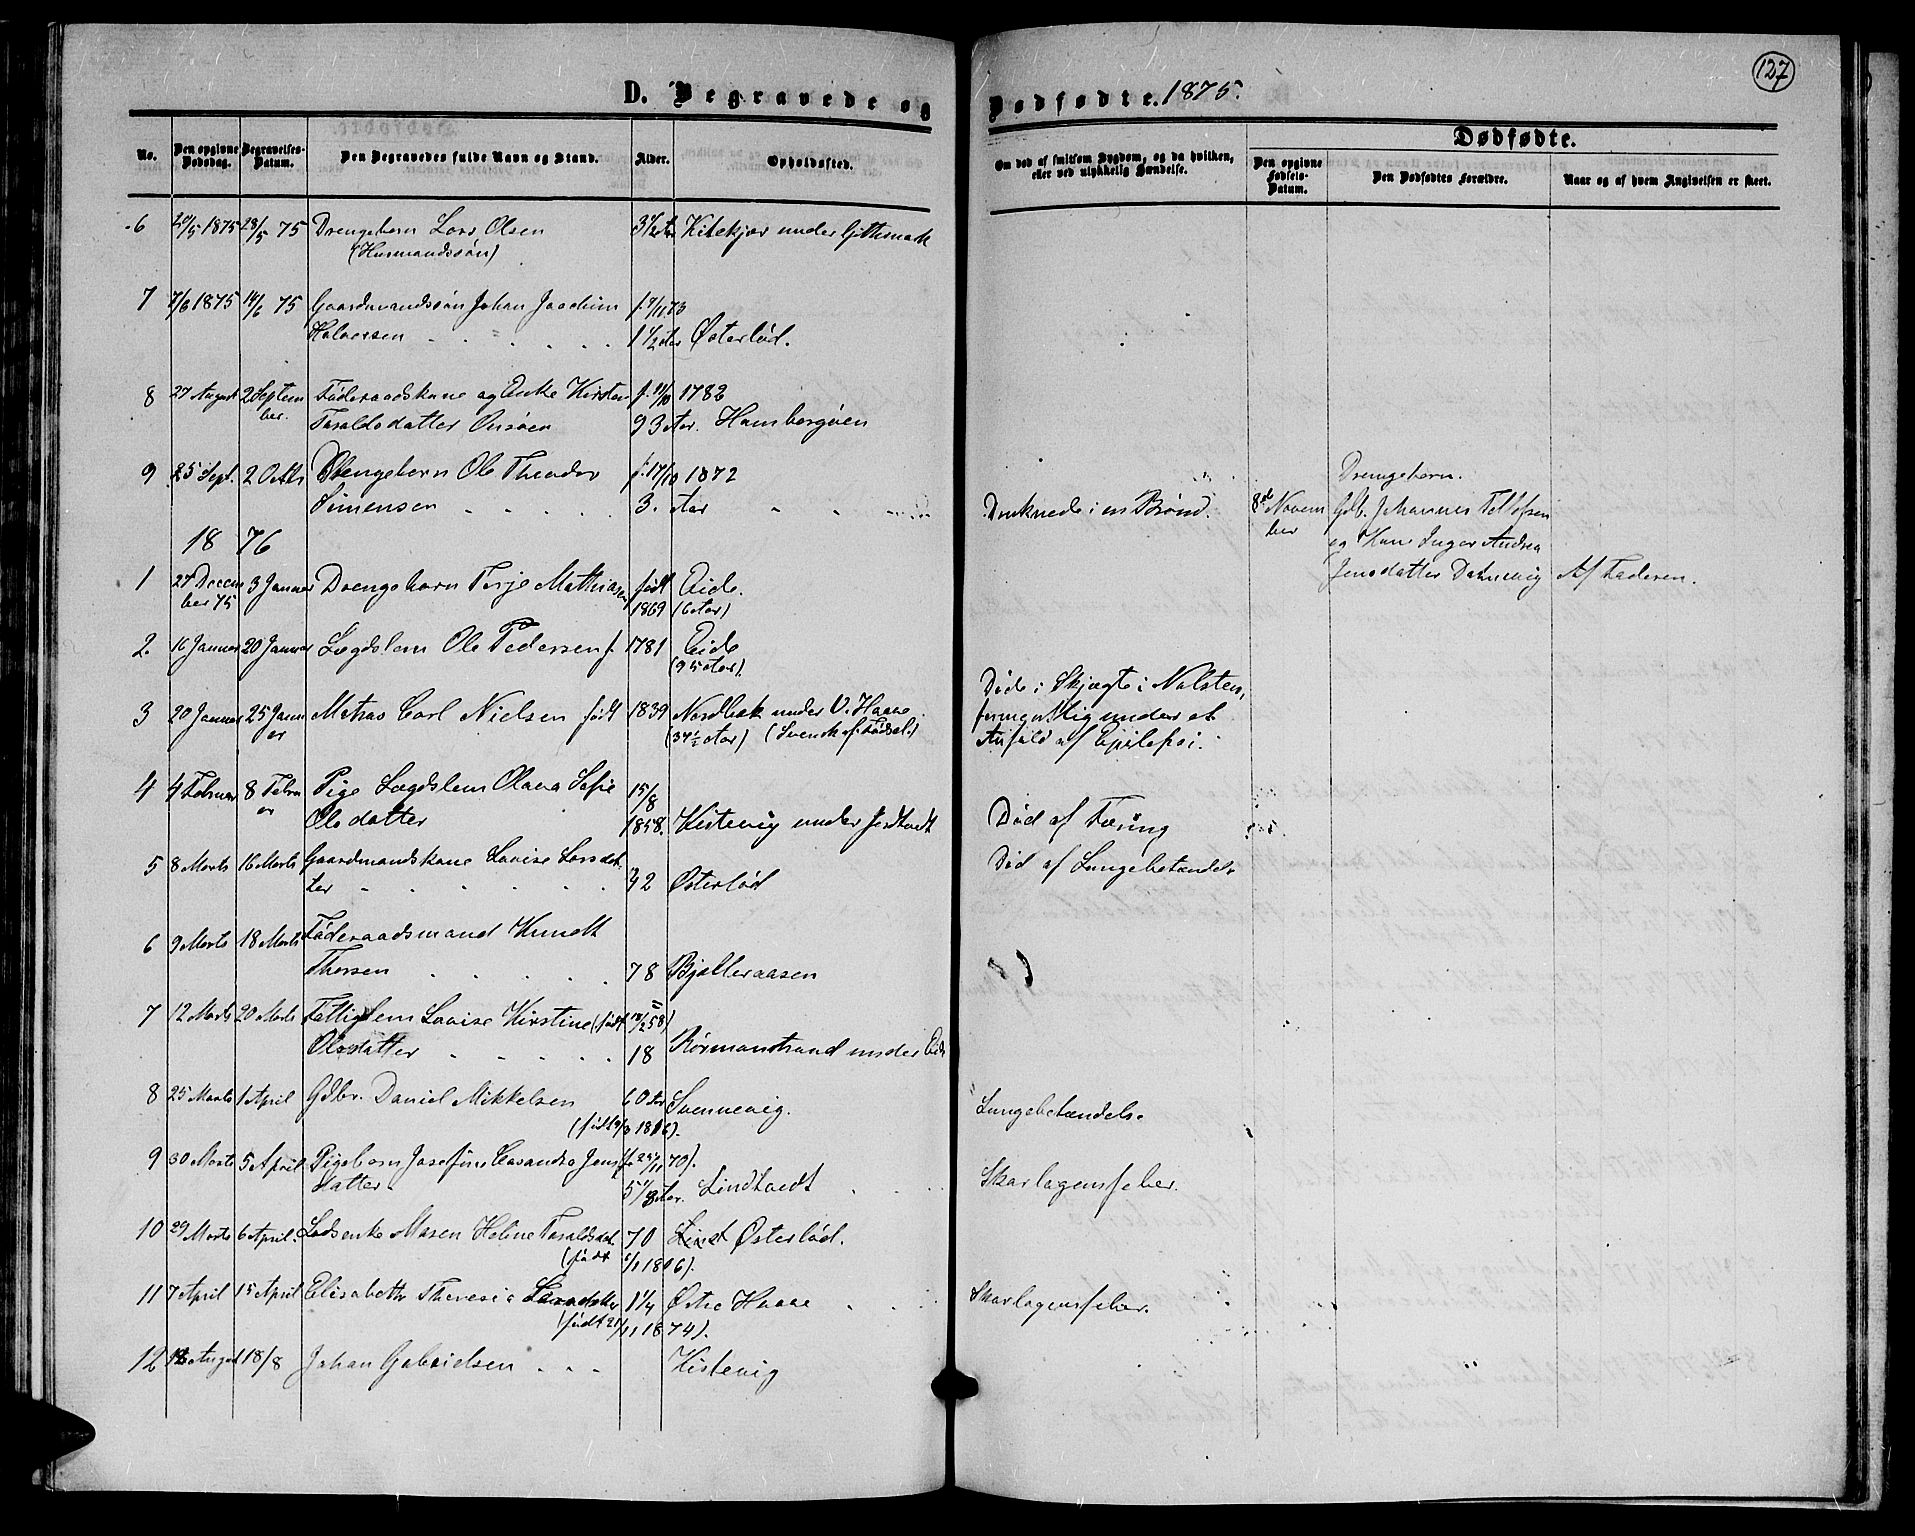 127
D. Begravede og Dødfødte. 1875.
Dødfødte.
No.
Den opgivne Dødsdag.
Begravelses-Datum.
Den Begravedes fulde Navn og Stand.
Alder.
Opholdssted.
Om død af smitsom Sygdom, og da hvilken, eller ved ulykkelig Hændelse.
Den opgivne Fødsels-Datum.
Den Dødfødtes Forældre.
Naar og af hvem Angivelsen er skeet.
6 20/5 1875 28/5 75 Drengebarn Lars Olsen 3 1/2 Aar under
(Husmandssøn)
7 7/6 1875 14/6 75 Gaardmandssøn Johan Joachim f. 7/11 73
Halvorsen 1 1/2 Aar Østerlød.
8 27 August 2 Septem Föderaadskone og Enke Kirsten f. 1782
ber. Taraldsdatter 93 Aar.
9 25 Sept. 2 Octbr Drengebarn Ole Theodor f. 17/10 1872 Drengebarn.
Simensen 3. Aar Druknede i en Brønd. 8de Novem Gdb. Johannes Tellefsen
ber og Kone Inger Andrea
18 76
Jensdatter Dannevig Af Faderen.
1 27 Decem 3 Januar Drengebarn Terje Mathiasen født Eide.
ber 75 1869 (6 Aar)
2. 16 Januar 20 Januar Lægdslem Ole Pedersen f. 1781 Eide
(95 Aar).
3 20 Januar 25 Janu Matros Carl Nielsen født 1839 Nordbek under V. Haave Døde i Skjægte i
ar (37 1/2 Aar) (Svensk af Fødsel.) under et
Anfald af Epilepsi.
4 4 Februar 8 Febru Pige Lægdslem Olava Sofie 15/8
ar Olsdatter 1858. Kistevig under Død af Tæring
5 8 Marts 16 Marts Gaardmandskone Lovise Larsdat Død af Lungebetændelse
ter 42 Østerlød
6 9 Marts 18 Marts Föderaadsmand Knudt
Thorsen 78 Bjelleraasen
7 12 Marts 20 Marts Fattiglem Lovise Kirstine (født 58)
Olsdatter 18 under Eide
8 25 Marts 1 April Gdbr. Daniel Mikkelsen 60 Aar Svennevig. Lungebetændelse
(født 1816).
9 30 Marts 5 April Pigebarn Josefine Casandra Jens (f. 24/11 70).
datter 5 1/3 Aar. Lindtvedt Skarlagensfeber.
10 29 Marts 6 April. Lodsenke Maren Helene Taraldsdat. 70 Østerlød.
(født 1/1 1806).
11 7 April 15 April Elisabeth Theresia Larsdatter 1 1/4 Østre Haave Skarlagensfeber.
(født 21/11 1874).
12 August 18/8 Johan Gabrielsen Kistevig